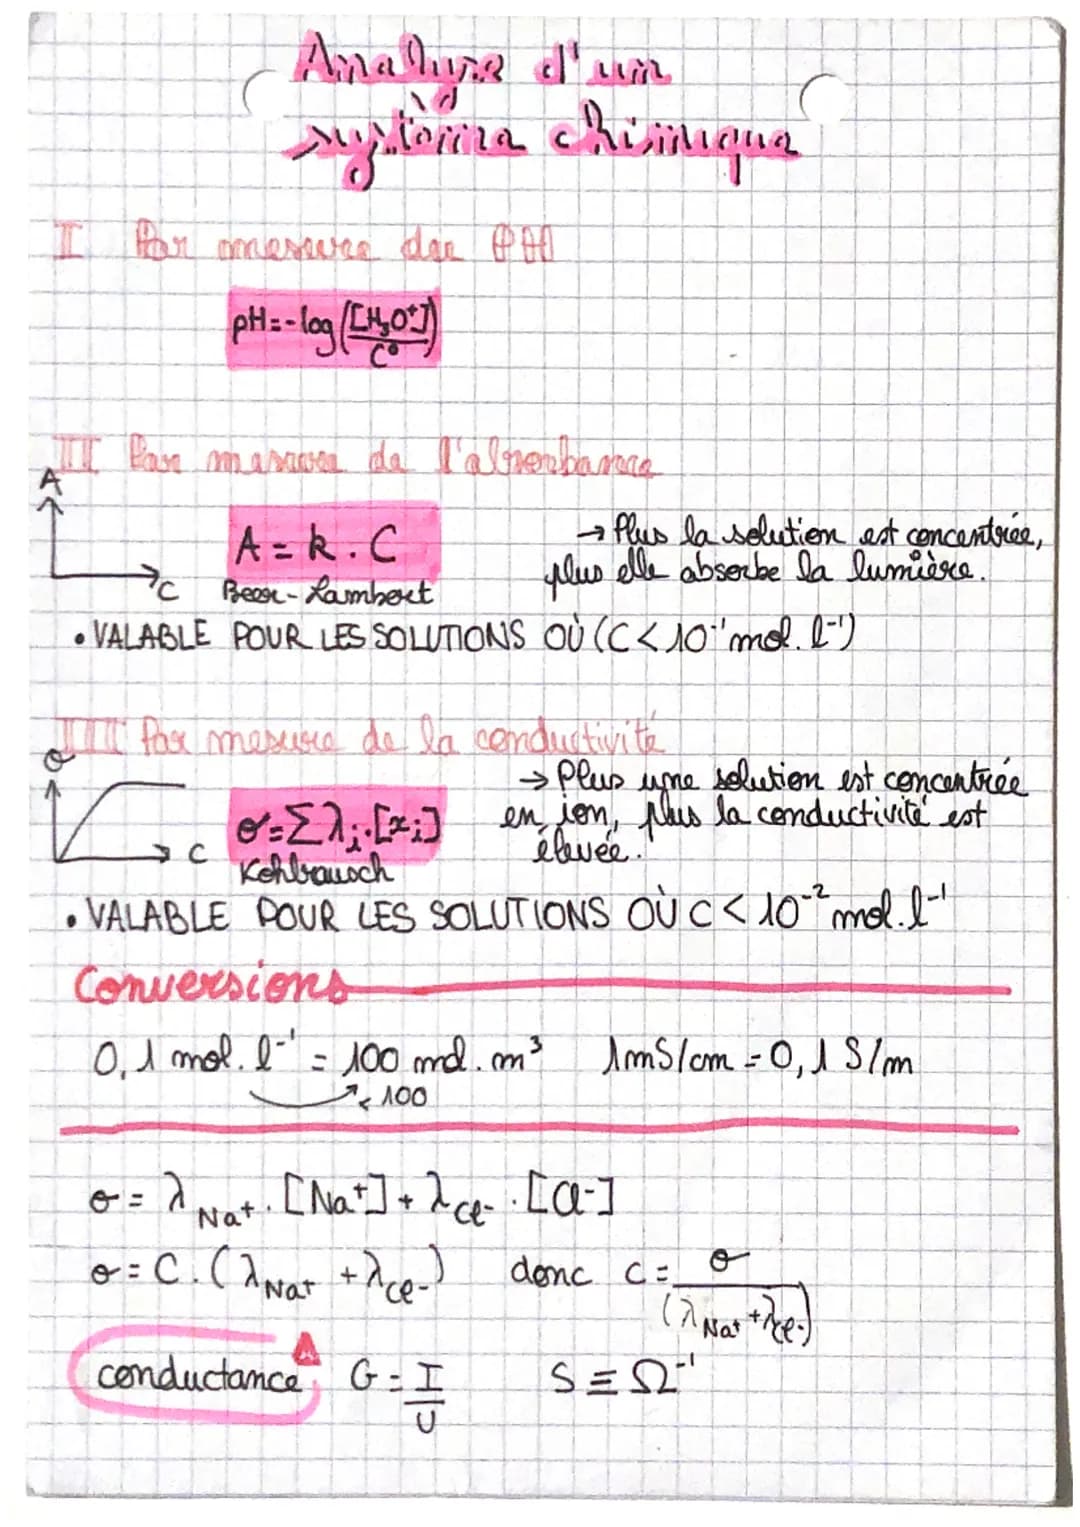 Analyse d'un
système chimique
I Par mesure de PH
pH=-log([H₃O⁺]/C°)
II Par mesure de l'absorbance
A
A = k . C
→ Plus la solution est concentrée,
plus elle absorbe la lumière.
C
Beer-Lambert
• VALABLE POUR LES SOLUTIONS OÙ (C < 10⁻¹ mol. l⁻¹)
III Par mesure de la conductivité
σ
→ Plus une solution est concentrée
en ion, plus la conductivité est
élevée.
σ=Σλi.[xi]
C
Kohlrausch
• VALABLE POUR LES SOLUTIONS OÙ C < 10⁻² mol. l⁻¹
Conversions
0,1 mol. l⁻¹ = 100 mol. m³ 1mS/cm = 0,1 S/m
× 100
σ = λNa⁺. [Na⁺] + λCl⁻ . [Cl⁻]
σ = C. (λNa⁺ + λCl⁻) donc C = σ/(λNa⁺ + λCl⁻)
conductance G = I/U S ≡ Ω⁻¹